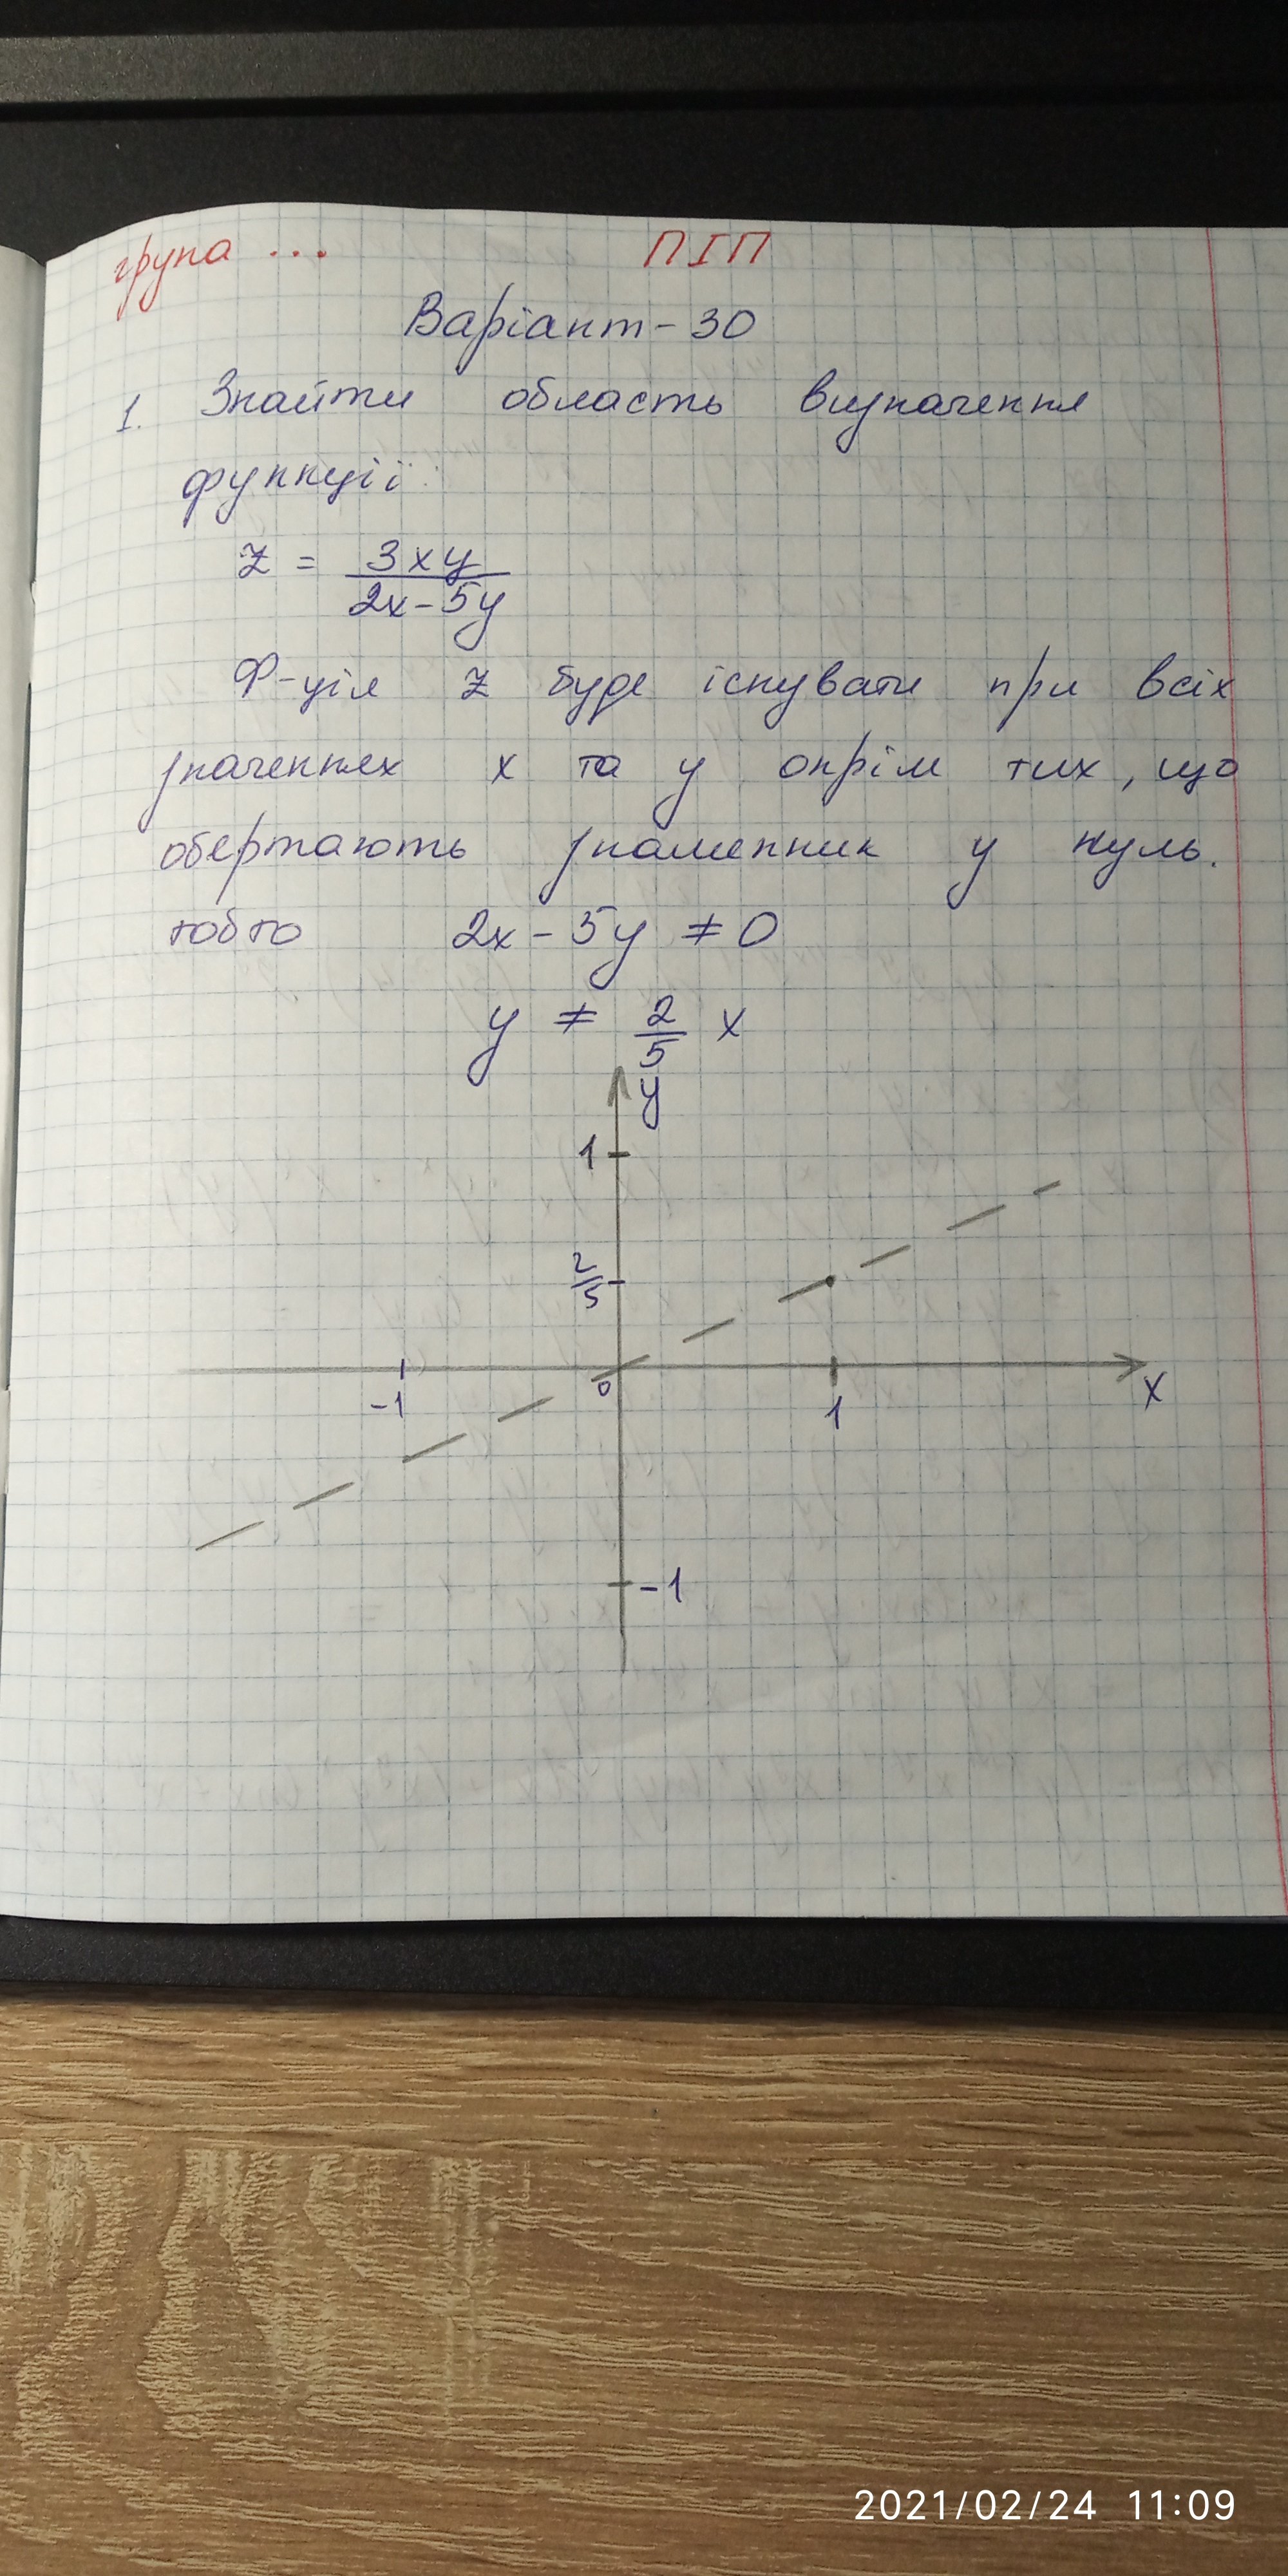 група ... ПІП
Варіант - 30
1. Знайти область визначення
функції:
z = 3xy / 2x - 5y
Ф-ція z буде існувати при всіх
значеннях x та y окрім тих, що
обертають знаменник у нуль.
тобто 2x - 5y ≠ 0
y ≠ 2/5 x
y
1
2/5
-1 0 1 x
-1
2021/02/24 11:09